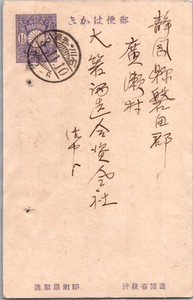 郵便はかき
静岡縣磐田郡
廣瀬村
大箸酒造合資會社
御中
逓信省発行
印刷局製造